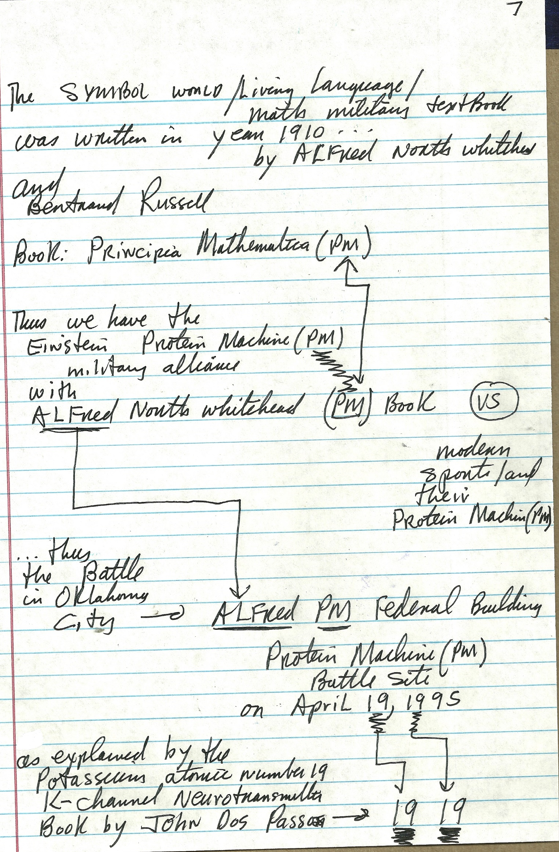 7
The SYMBOL world/Living Language/
math military textBook
was written in year 1910...
by ALFred North whitehead
and
Bertrand Russell
Book: Principia Mathematica (PM)
Thus we have the
Einstein Protein Machine (PM)
military alliance
with
ALFred North whitehead (PM) Book VS
modern
sports/and
their
Protein Machin(PM)
... thus
the Battle
in Oklahoma
City → ALFred PM Federal Building
Protein Machine (PM)
Battle Site
on April 19, 1995
as explained by the
Potassium atomic number 19
K-channel Neurotransmitter
Book by JOHN Dos Passos → 19 19